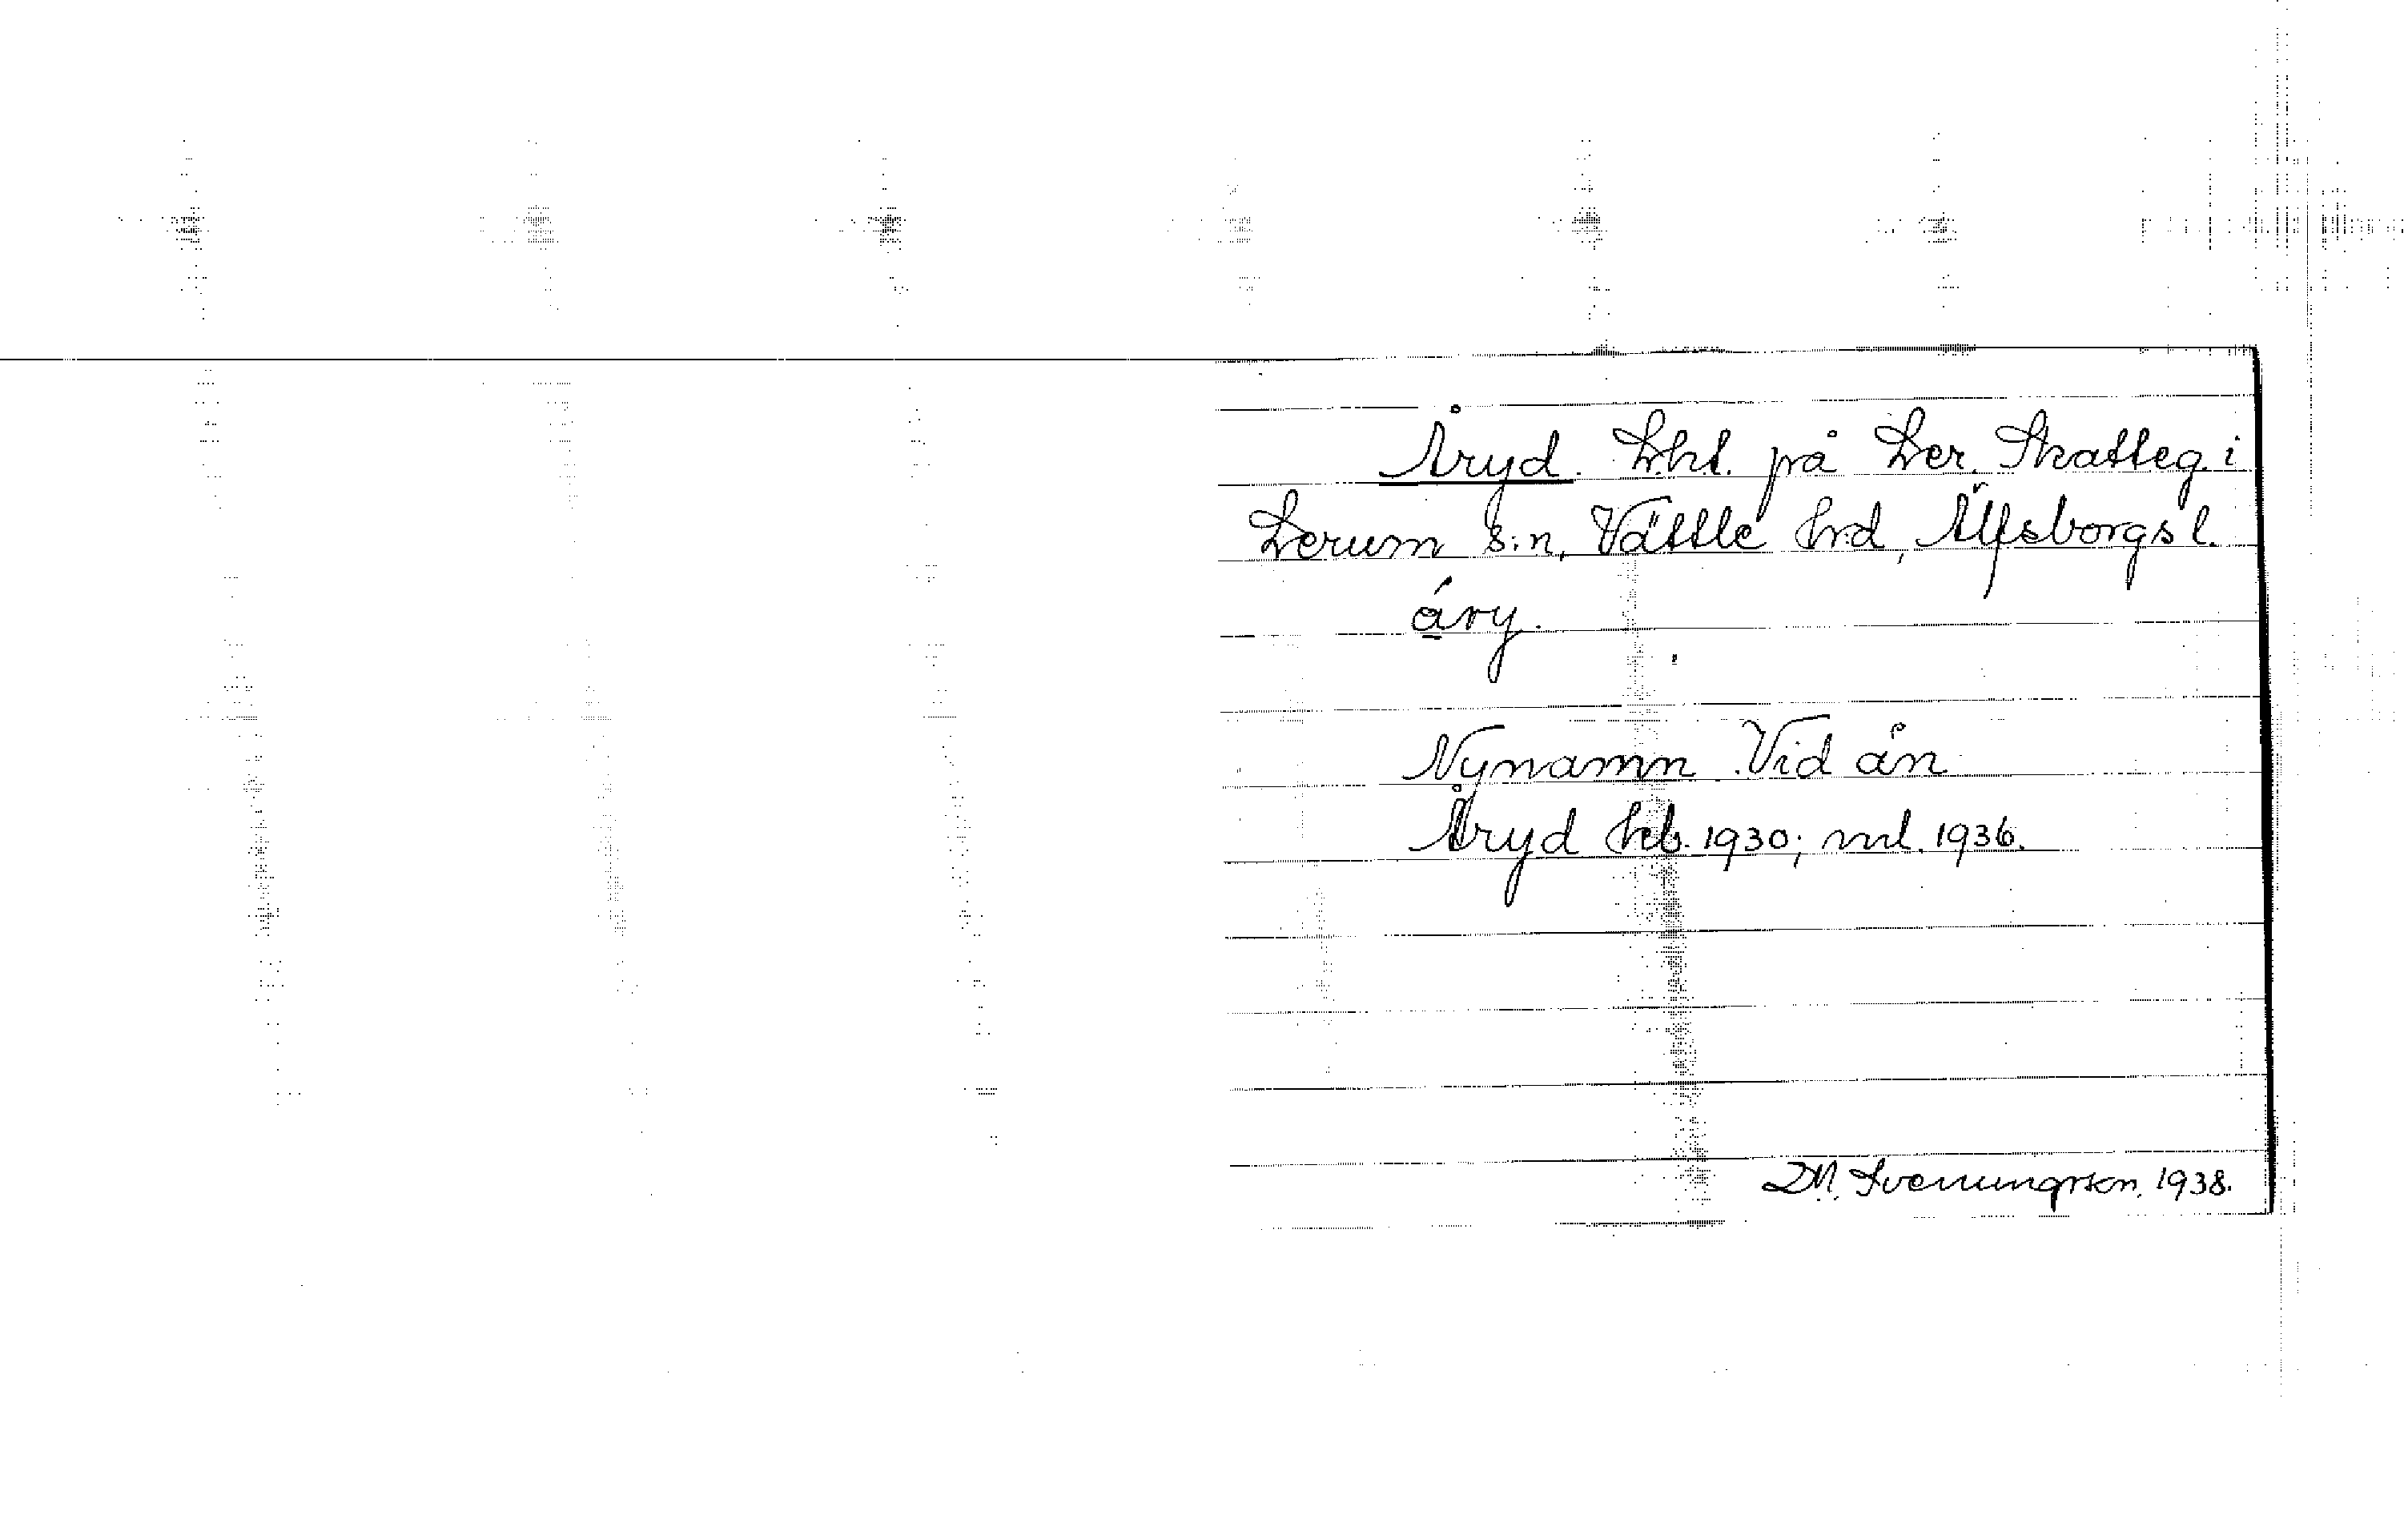 Åryd. Lht. på Ler. Skatteg. i
Lerum s:n, Vättle hrd, Älfsborgs l.
áry.
Nynamn. Vid ån
Åryd hb. 1930; ml. 1936.
D.M. Svenungsson. 1938.